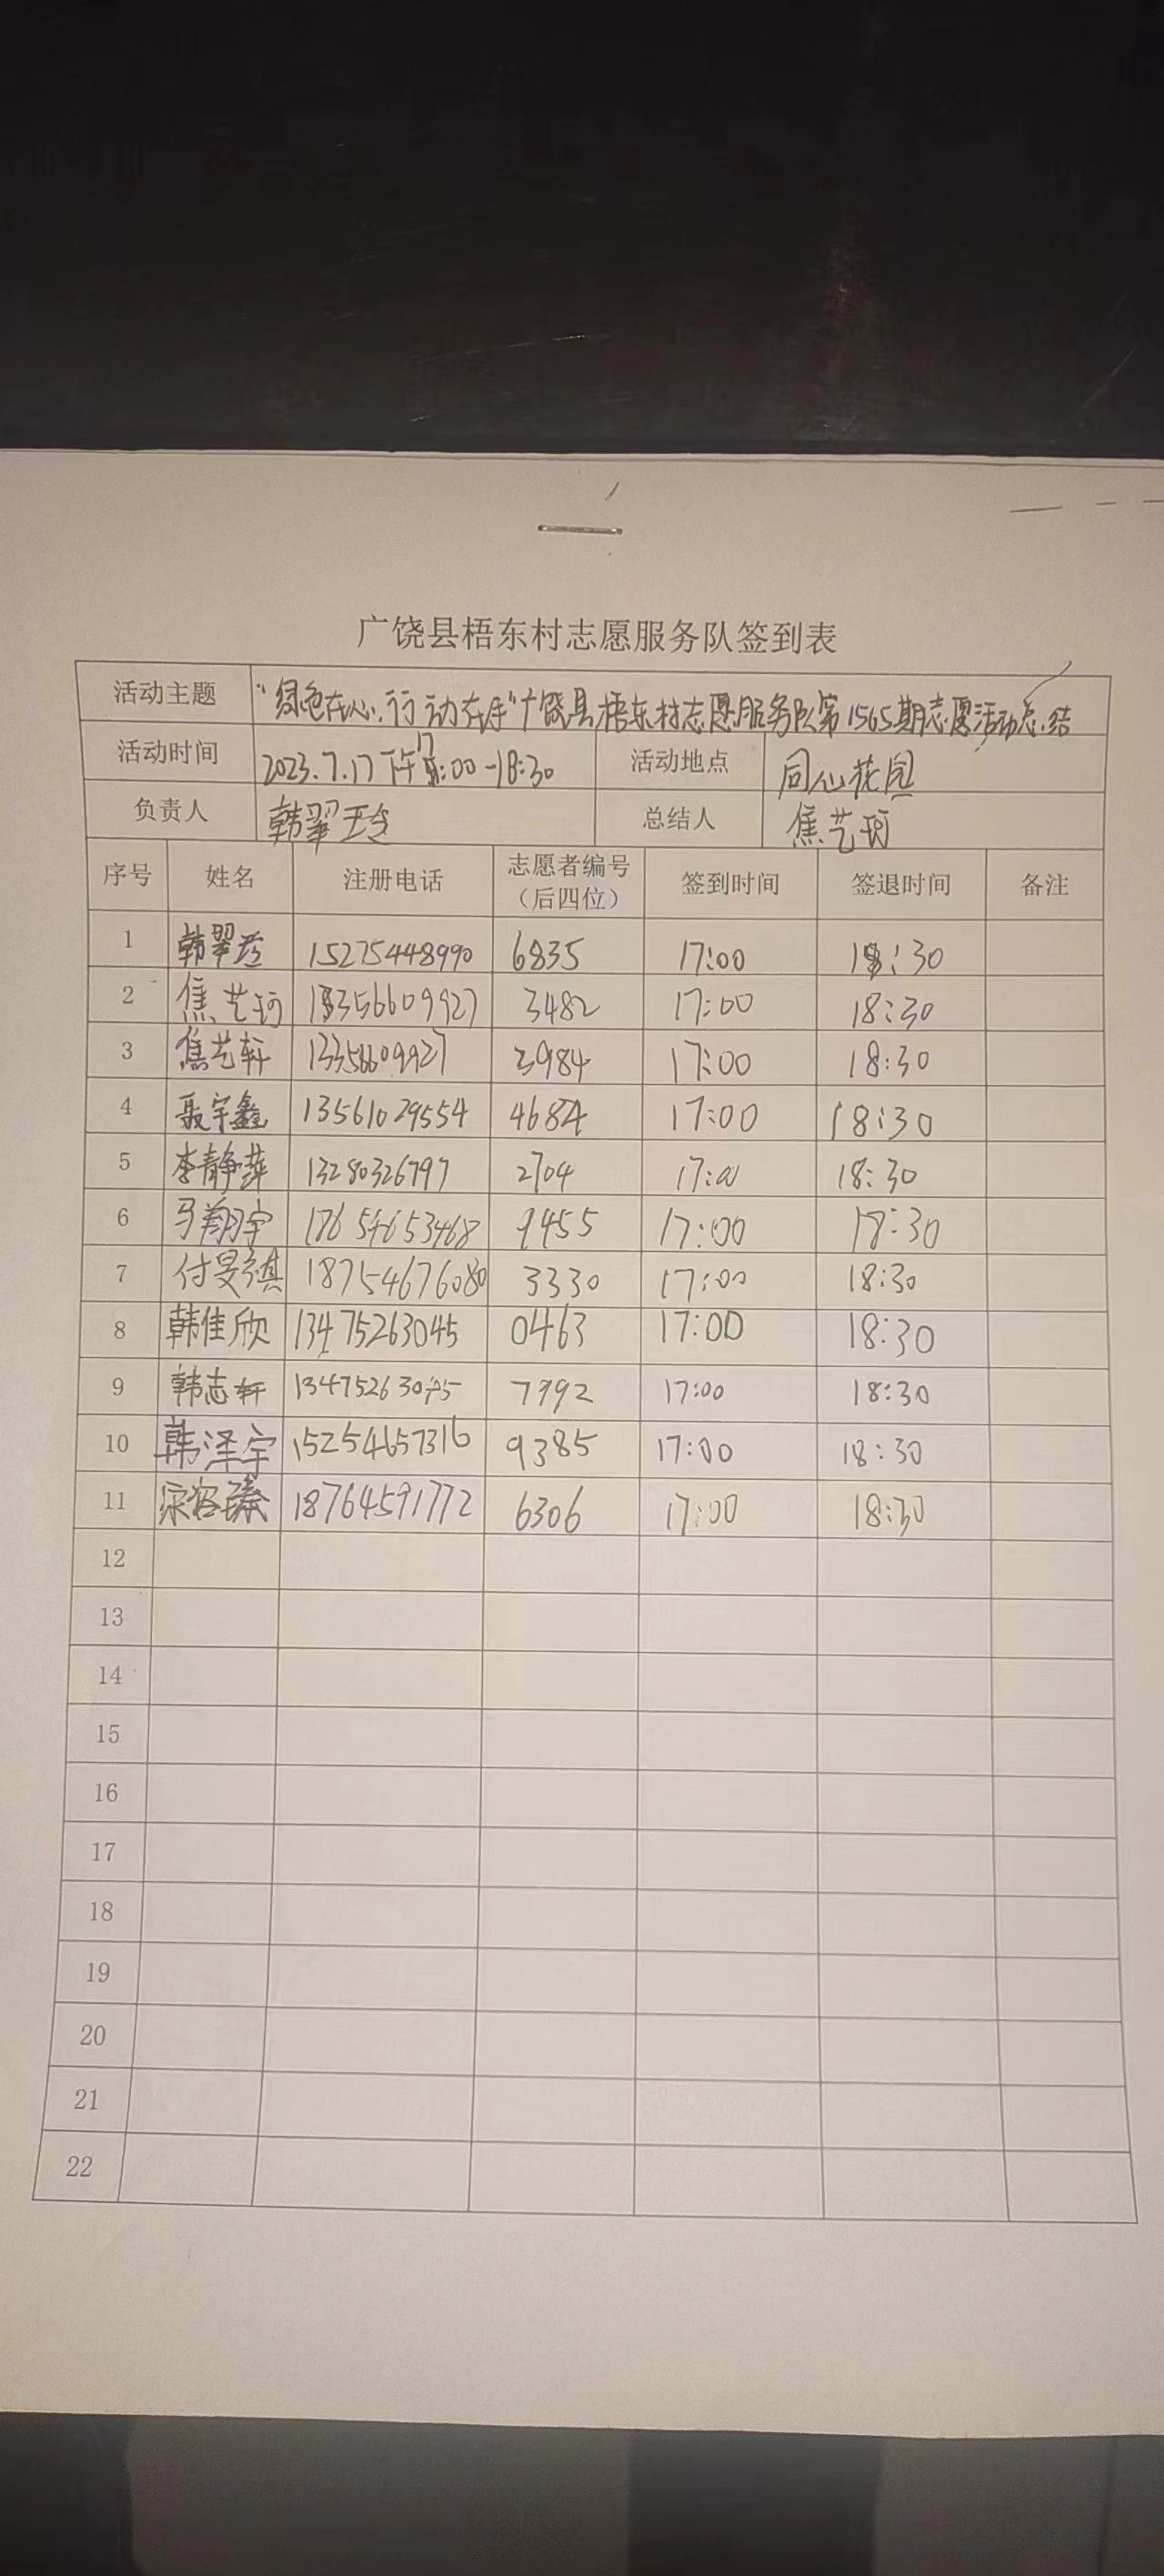 广饶县梧东村志愿服务队签到表
活动主题 “绿色在心,行动在手”广饶县梧东村志愿服务队第1565期志愿活动总结
活动时间 2023.7.17 下午17:00-18:30 活动地点 同心花园
负责人 韩翠玲 总结人 焦艺珂
序号 姓名 注册电话 志愿者编号(后四位) 签到时间 签退时间 备注
1 韩翠玲 15275448990 6835 17:00 18:30
2 焦艺珂 13356609927 3482 17:00 18:30
3 焦艺轩 13356609927 3984 17:00 18:30
4 聂宇鑫 13561029554 4684 17:00 18:30
5 李静萍 13280326797 2704 17:00 18:30
6 马翔宇 17654653468 9455 17:00 18:30
7 付旻祺 18754676080 3330 17:00 18:30
8 韩佳欣 13475263045 0463 17:00 18:30
9 韩志轩 13475263045 7992 17:00 18:30
10 韩泽宇 15254657316 9385 17:00 18:30
11 18764591772 6306 17:00 18:30
12
13
14
15
16
17
18
19
20
21
22